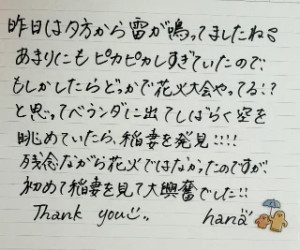 昨日は夕方から雷が鳴ってましたね。
あまりにもピカピカしすぎていたので、
もしかしたらどっかで花火大会やってる!?
と思ってベランダに出てしばらく空を
眺めていたら、稲妻を発見!!!!
残念ながら花火ではなかったのですが、
初めて稲妻を見て大興奮でした!!
Thank you hana